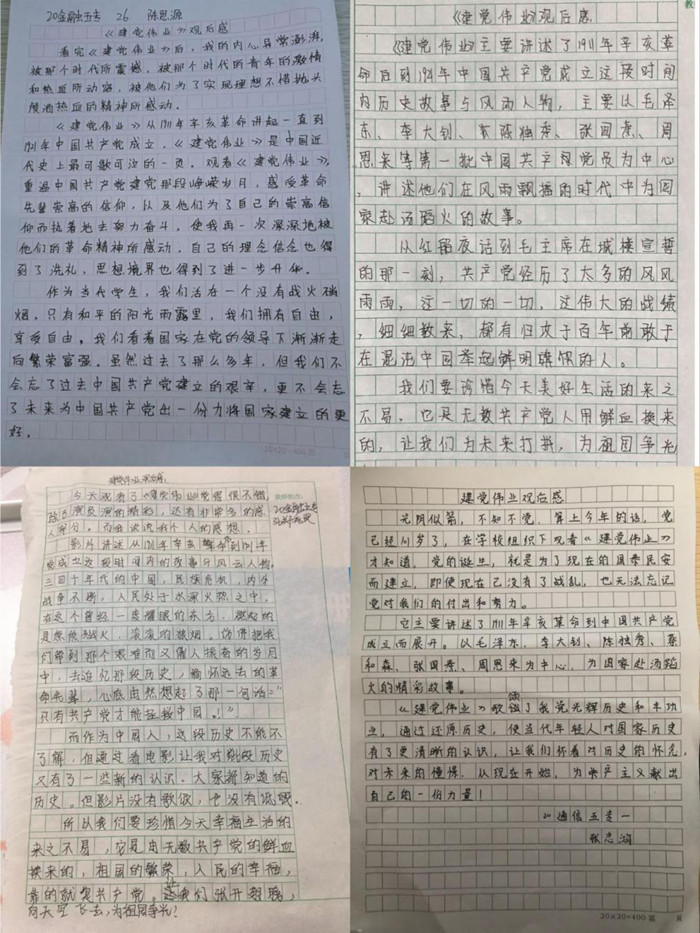 20金融五专 26 陈思源
《建党伟业》观后感
看完《建党伟业》后，我的内心异常澎湃，
被那个时代所震撼，被那个时代的青年的激情
和热血所动容，被他们为了实现理想不惜抛头
颅洒热血的精神所感动。
《建党伟业》从1911年辛亥革命讲起一直到
1921年中国共产党成立，《建党伟业》是中国近
代史上最可歌可泣的一页。观看《建党伟业》，
重温中国共产党建党那段峥嵘岁月，感受革命
先辈崇高的信仰，以及他们为了自己的崇高信
仰而执着地去努力奋斗，使我再一次深深地被
他们的革命精神所感动，自己的理念信念也得
到了洗礼，思想境界也得到了进一步升华。
作为当代学生，我们活在一个没有战火硝
烟，只有和平的阳光雨露里，我们拥有自由，
享受自由。我们看着国家在党的领导下渐渐走
向繁荣富强。虽然过去了那么多年，但我们不
会忘了过去中国共产党建立的艰辛，更不会忘
了未来为中国共产党出一份力将国家建立的更
好。
20×20=400
《建党伟业》观后感
《建党伟业》主要讲述了1911年辛亥革
命后到1921年中国共产党成立这段时间
内历史故事与风雨人物，主要以毛泽
东、李大钊、陈独秀、张国焘、周
恩来等第一批中国共产党党员为中心
，讲述他们在风雨飘摇的时代中为国
家赴汤蹈火的故事。
从红船夜话到毛主席在城楼宣誓
的那一刻，共产党经历了太多的风风
雨雨，这一切的一切，这伟大的战绩
，细细数来，都有归功于百年前敢于
在混沌中国举起鲜明旗帜的人。
我们要珍惜今天美好生活的来之
不易，它是无数共产党人用鲜血换来
的，让我们为未来打拼，为祖国争光
建党伟业观后感
今天观看了《建党伟业》觉得很不错
演员演的精彩，还有非常多的感
人部分，而去谈谈我个人的感想。
影片讲述从1911年辛亥革命到1921年
党成立这段时间内的故事与风云人物，
二十年代的中国，民族危机，内外
战争不断，人民处于水深火热之中，
在这个曾经一度耀眼的东方，燃起的
是熊熊战火，滚滚的狼烟。仿佛把我
们带到那个艰难而又催人振奋的岁月
中，去追忆那段历史，缅怀远去的革
命先辈，心底由然想起了那一句话："
只有共产党才能拯救中国。！"
而作为中国人，这段历史不能不
了解，但通过看电影让我对那段历史
又有了一些新的认识。大家都知道的
历史。但影片没有歌颂，也没有诋毁。
所以我们要珍惜今天幸福生活的
来之不易，它是由无数共产党的鲜血
换来的，祖国的繁荣，人民的幸福，
靠的就是共产党。让我们张开翅膀，
向天空飞去，为祖国争光！
建党伟业观后感
光阴似箭，不知不觉，算上今年的话，党
已经101岁了，在学校组织下观看《建党伟业》
才知道，党的诞生，就是为了现在的国泰民安
而建立，即使现在已没有了战乱，也无法忘记
党对我们的付出和努力。
它主要讲述了1911年辛亥革命到中国共产党
成立而展开。以毛泽东，李大钊、陈独秀、蔡
和森、张国焘、周恩来为中心，为国家赴汤蹈
火的精彩故事。
《建党伟业》歌颂了我党光辉历史和丰功
业，通过还原历史，使当代年轻人对国家历史
有了更清晰的认识，让我们怀着对历史的怀念，
对未来的憧憬，从现在开始，为共产主义献出
自己的一份力量！
通信五专一
20×20=400